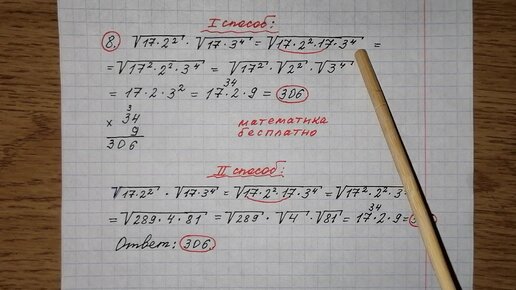 I способ:
8. √17·2² · √17·3⁴ = √17·2²·17·3⁴ =
= √17²·2²·3⁴ = √17² · √2² · √3⁴ =
= 17·2·3² = 17·2·9 = 306
34
3
× 34
9
306
математика
бесплатно
II способ:
√17·2² · √17·3⁴ = √17·2²·17·3⁴ = √17²·2²·3
= √289·4·81 = √289 · √4 · √81 = 17·2·9 =
34
Ответ: 306.